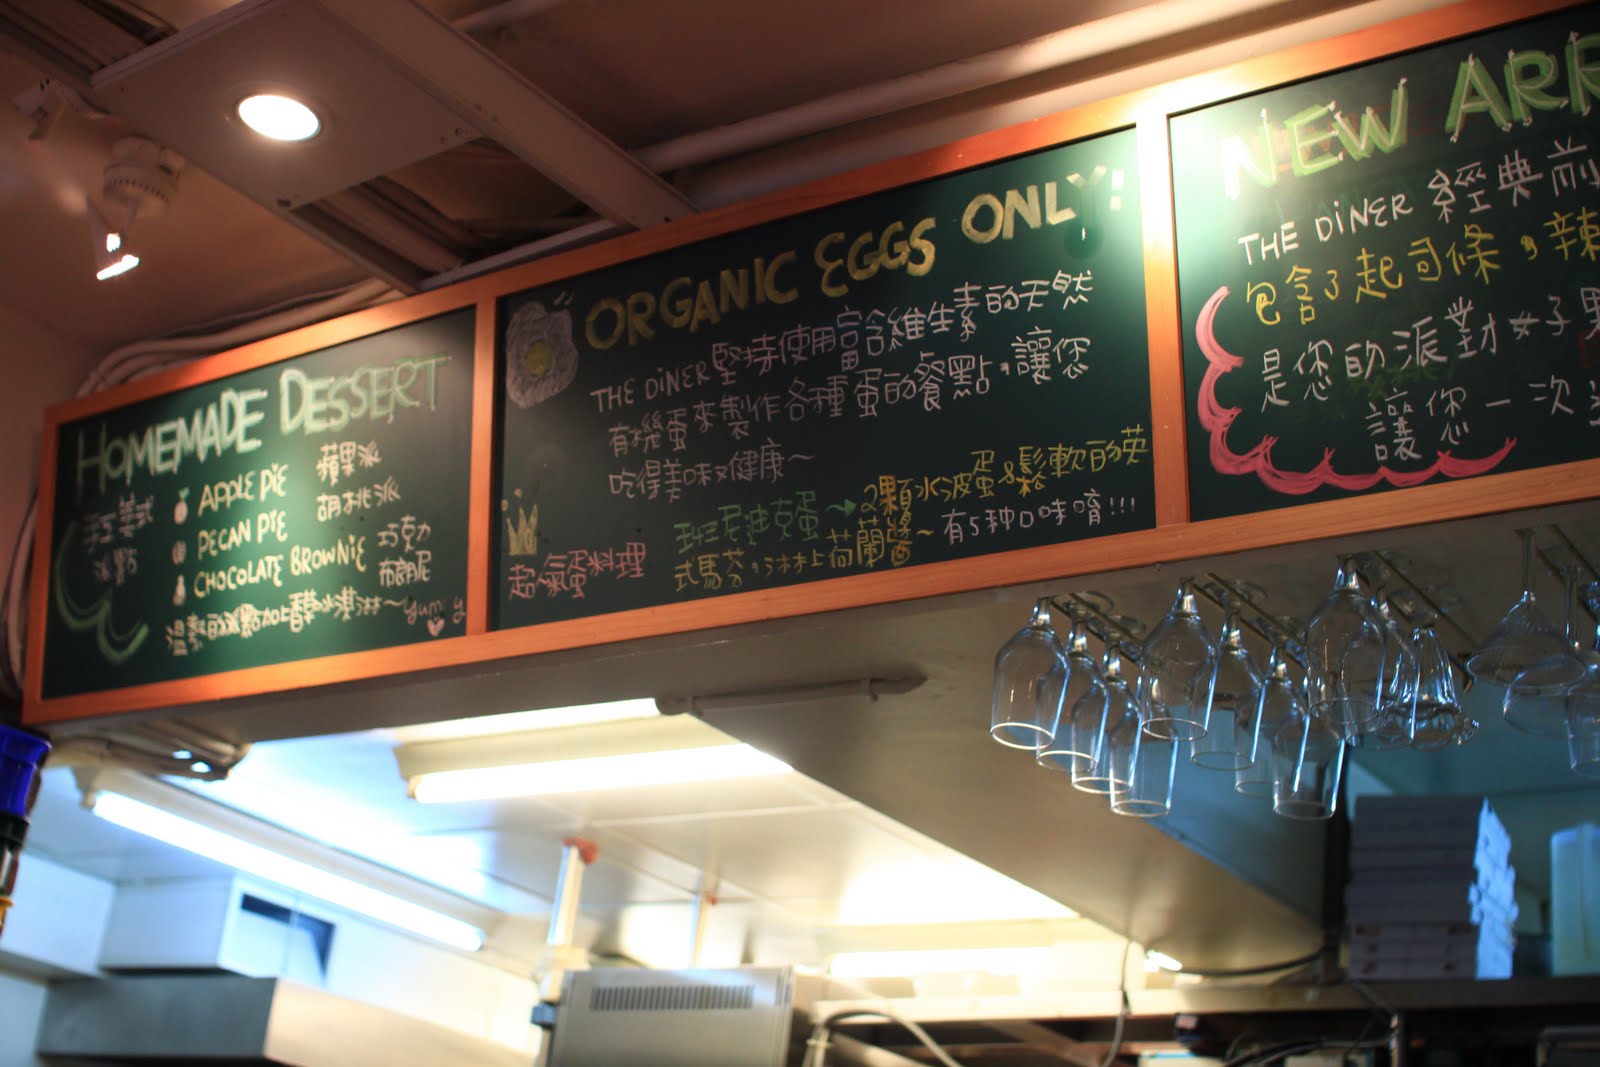 HOMEMADE DESSERT
手工美式
冰點
APPLE PIE 蘋果派
PECAN PIE 胡桃派
CHOCOLATE BROWNIE 巧克力
布朗尼
溫熱的冰點加上香草冰淇淋~yummy
ORGANIC EGGS ONLY!
THE DINER堅持使用富含維生素的天然
有機蛋來製作各種蛋的餐點，讓您
吃得美味又健康~
超人氣蛋料理
班尼迪克蛋→2顆水波蛋&鬆軟的英
式馬芬，淋上荷蘭醬~有5種口味唷!!!
NEW ARR
THE DINER 經典前
包含了起司條，辣
是您的派對好子
讓您一次